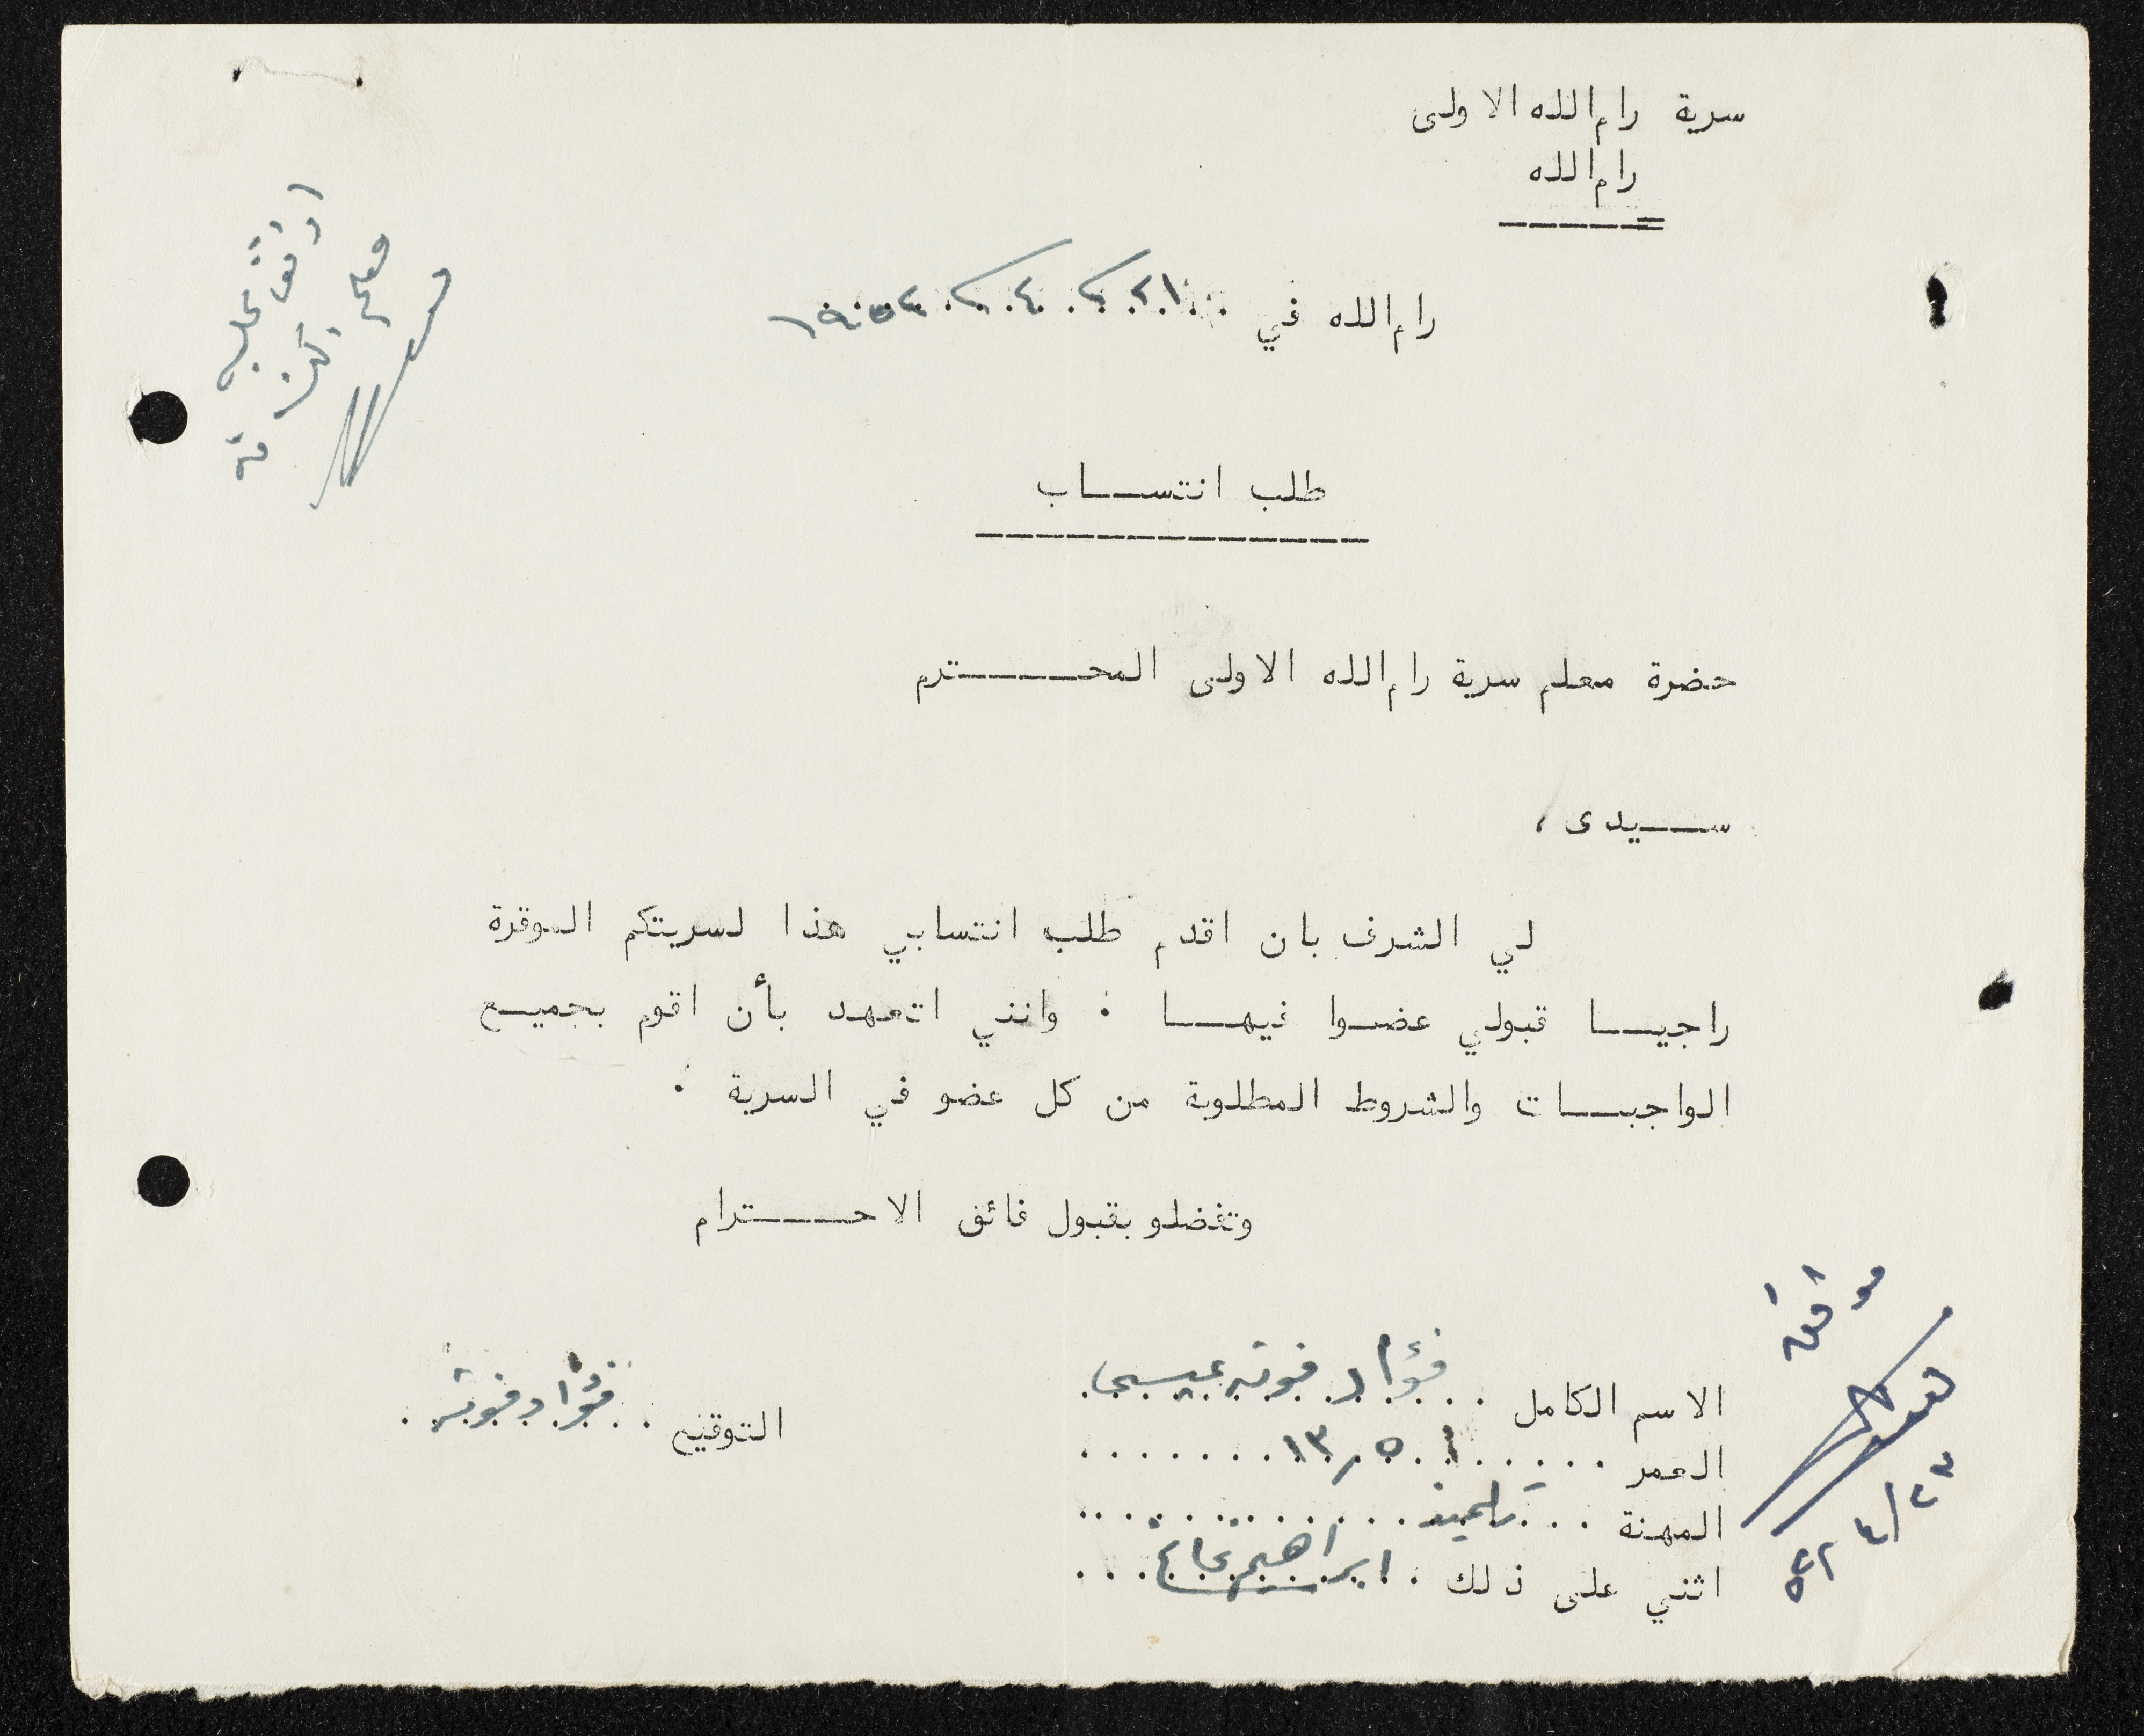 سرية رام الله الاولى
رام الله
رام الله في ٢١ / ٤ / ١٩٥٢
طلب انتساب
حضرة معلم سرية رام الله الاولى المحترم
سيدى ،
لي الشرف بان اقدم طلب انتسابي هذا لسريتكم الموقرة
راجيا قبولي عضوا فيها . وانني اتعهد بأن اقوم بجميع
الواجبات والشروط المطلوبة من كل عضو في السرية .
وتفضلو بقبول فائق الاحترام
موافق
الاسم الكامل . . فؤاد فوته عيسى
التوقيع . . فؤاد فوته
العمر . . . . . ١٣٫٥ . . . . . . .
المهنة . . . تلميذ . . . . . . . . . .
٢٣/٤/٥٢
اثني على ذلك . ابراهيم . . .